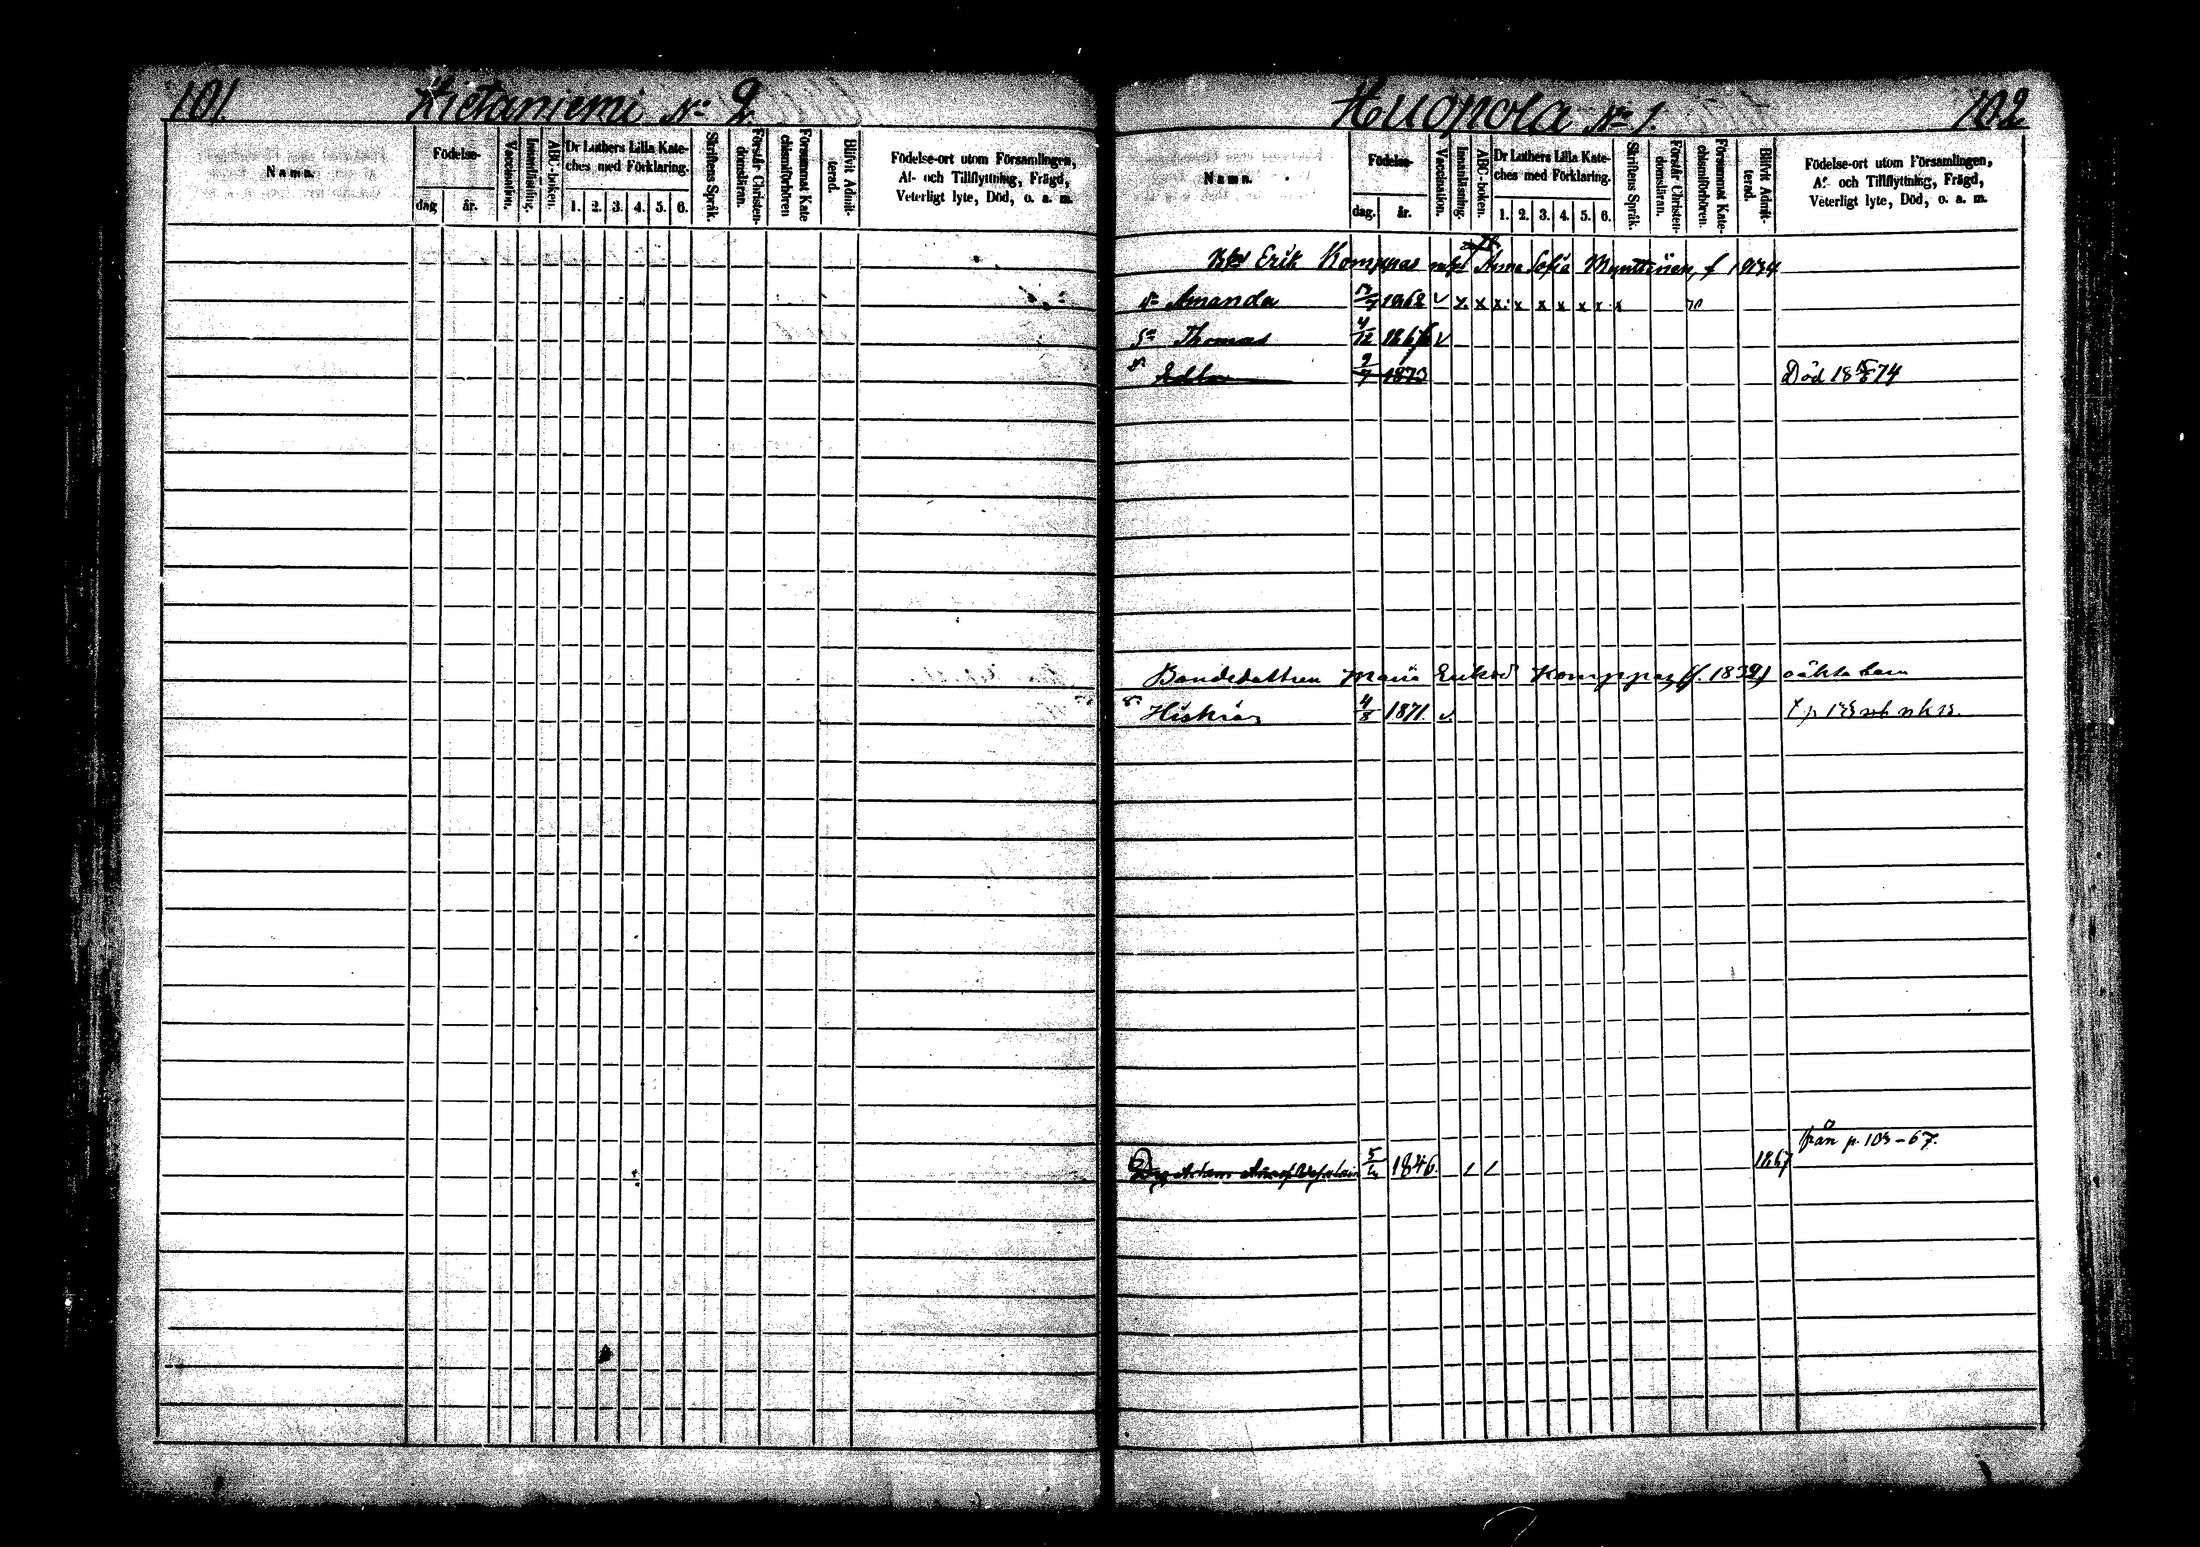 101.
Hietaniemi No 2
Namn.
Födelse-
dag
år.
Vaccination.
Innanläsning.
ABC-boken.
Dr Luthers Lilla Kate-
ches med Förklaring.
1. 2. 3. 4. 5. 6.
Skriftens Språk.
Förstår Christen-
domsläran.
Försummat Kate
chismiförhören
Blifvit Admit-
terad.
Födelse-ort utom Församlingen,
Af- och Tillflyttning, Frägd,
Veterligt lyte, Död, o. a. m.
Huopola No 1.
102
Namn.
Födelse-
dag.
år.
Vaccination.
Innanläsning.
ABC-boken.
Dr Luthers Lilla Kate-
ches med Förklaring.
1. 2. 3. 4. 5. 6.
Skriftens Språk.
Förstår Christen-
domsläran.
Försummat Kate-
chismiförhören.
Blifvit Admit-
terad.
Födelse-ort utom Församlingen,
Af- och Tillflyttning, Frägd,
Veterligt lyte, Död, o. a. m.
Erik Komppas Anna Sofia Mynttinen, f 1834
Amanda 1862 v x x x x x x x x x
Sn Thomas 4/12 1867 v
Edla 2/7 1873 Död 18 74
Bondedottren Maria Eriksd Komppas (f. 1832) oäkta barn
Hiskias 4/8 1871. v.
från p. 103-67.
5/6 1846. 1867